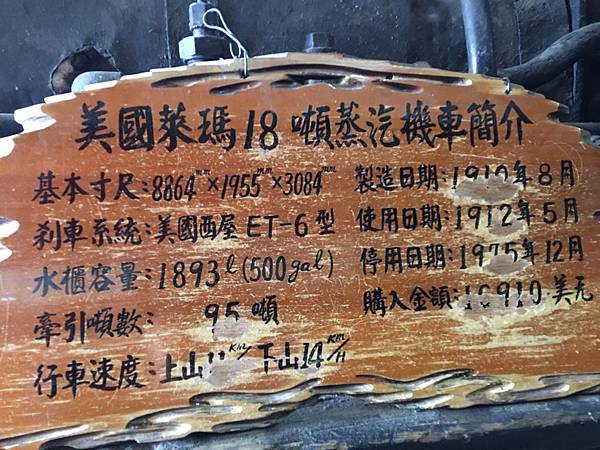 美國萊瑪18噸蒸汽機車簡介
基本寸尺：8864mm×1955mm×3084mm
剎車系統：美國西屋 ET-6 型
水櫃容量：1893ℓ(500gal)
牽引噸數： 95 噸
行車速度：上山 下山14KM/H
製造日期：1910年8月
使用日期：1912年5月
停用日期：1975年12月
購入金額： 美元